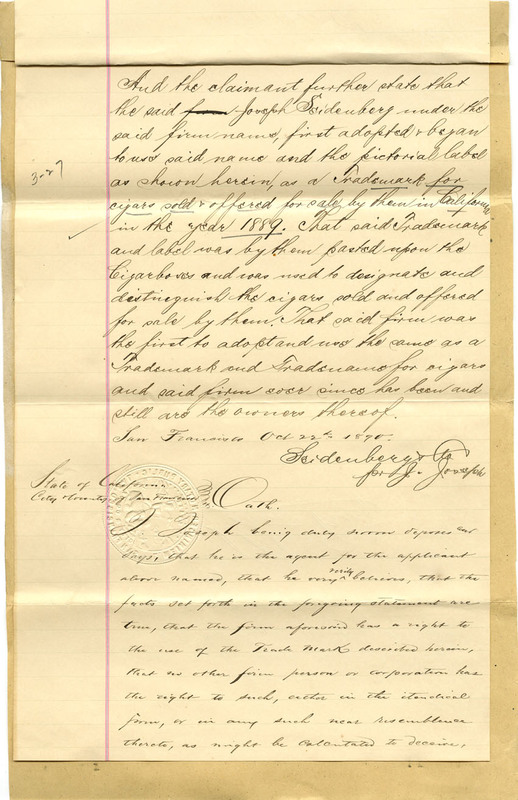 And the claimant further state that
the said Joseph Seidenberg under the
said firm name, first adopted & began
to use said name and the pictorial label
as shown herein, as a Trademark for
cigars sold & offered for sale by them in California
in the year 1889. That said Trademark
and label was by them pasted upon the
Cigarboxes and was used to designate and
distinguish the cigars sold and offered
for sale by them. That said firm was
the first to adopt and use the same as a
Trademark and Tradename for cigars
and said firm ever since has been and
still are the owners thereof.
San Francisco Oct 22th 1890.
Seidenberg & Co
per J. Joseph
State of California
City & County of San Francisco
Oath.
J Joseph being duly sworn deposes and
says, that he is the agent for the applicant
above named, that he very verily believes, that the
facts set forth in the forgoing statement are
true, that the firm aforesaid has a right to
the use of the Trade Mark described herein,
that no other firm person or corporation has
the right to such, either in the identical
form, or in any such near resemblence
thereto, as might be calculated to deceive,